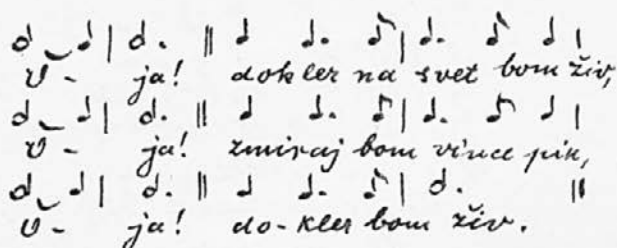 U - ja! dokler na svet bom živ,
U - ja! zmiraj bom vince pik,
U - ja! do-kler bom živ.